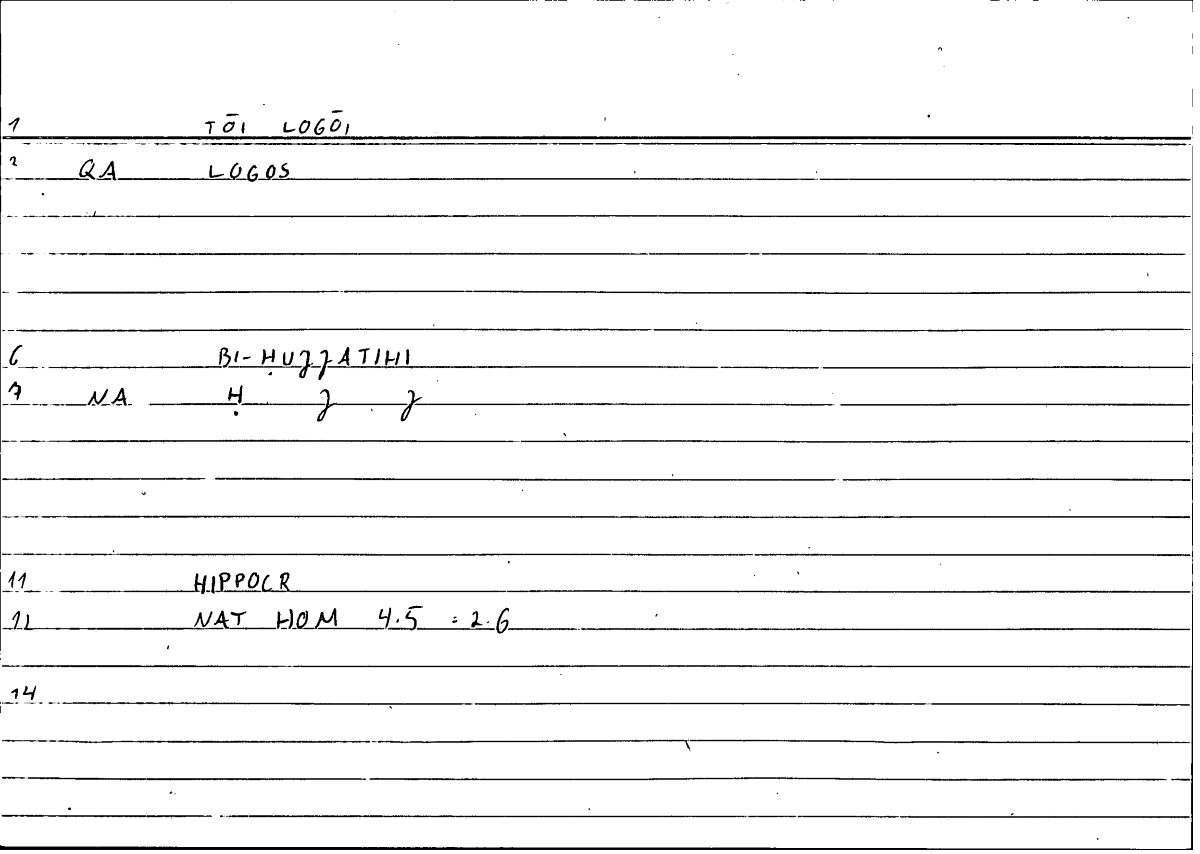 1 TŌI LOGŌI
2 QA LOGOS
6 BI-ḤUJJATIHI
7 NA Ḥ J J
11 HIPPOCR
12 NAT HOM 4.5 : 2.6
14